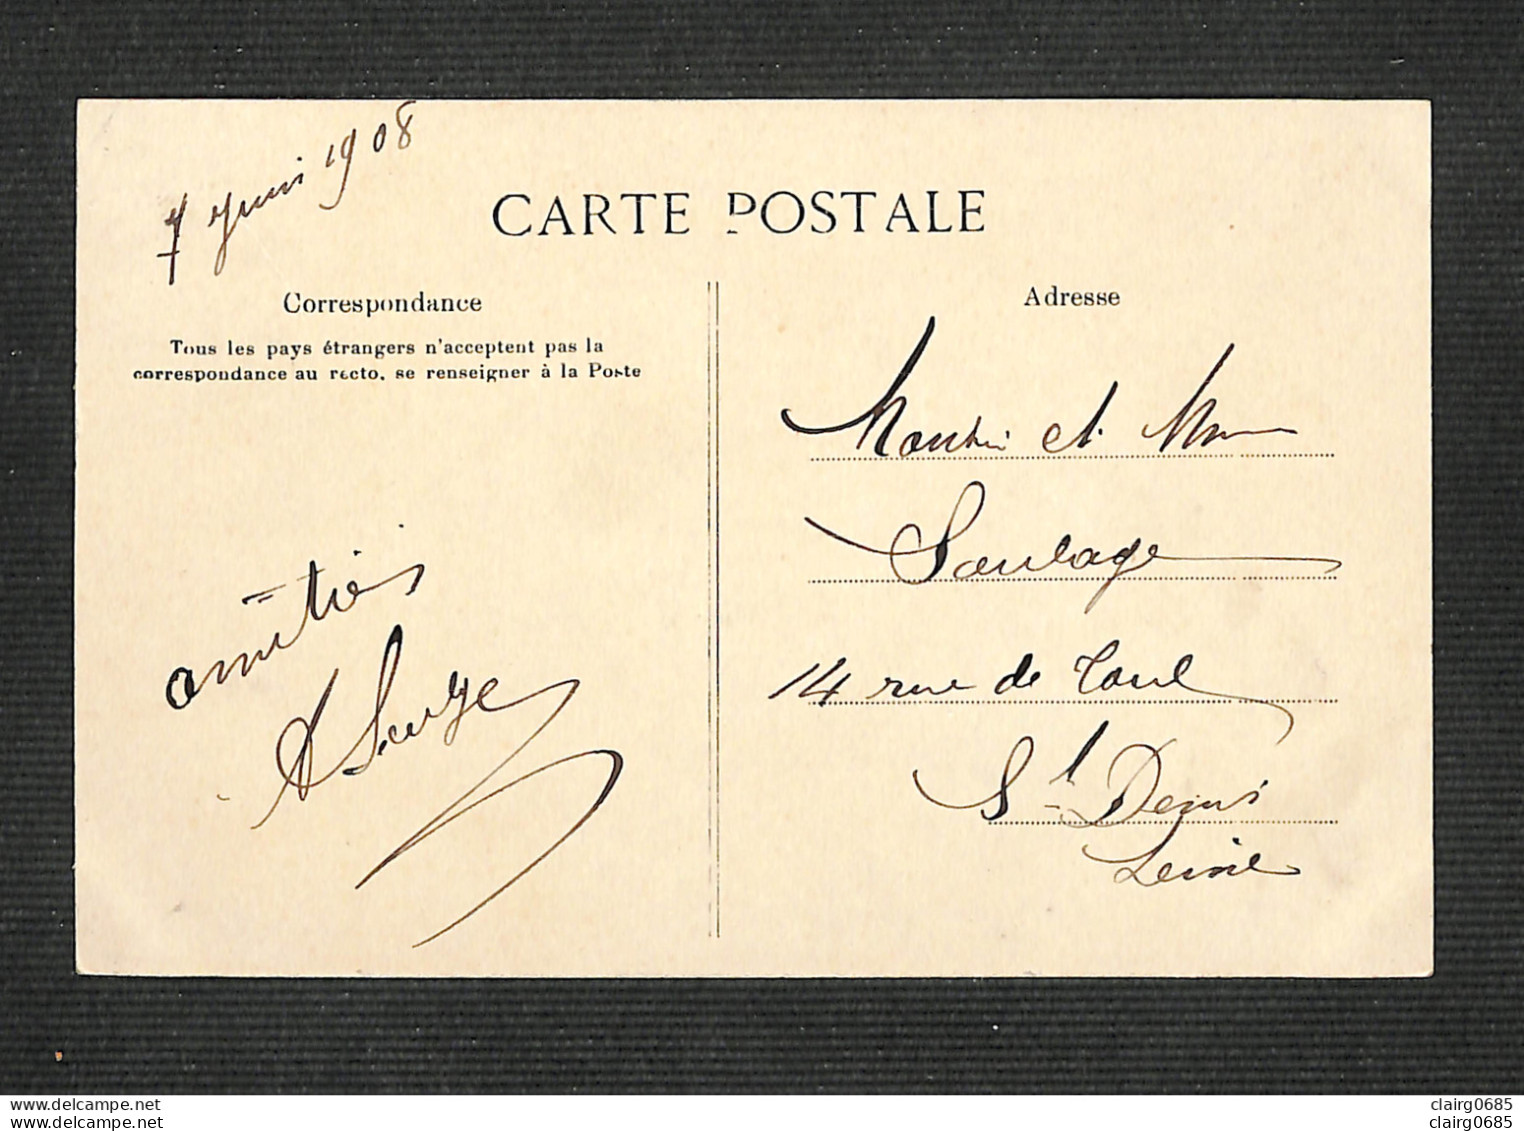 7 Juin 1908
CARTE POSTALE
Correspondance
Tous les pays étrangers n'acceptent pas la
correspondance au recto, se renseigner à la Poste
Adresse
et Mme
Soulage
14 rue de Toul
St Denis
Seine
amitiés
www.delcampe.net
your username
clairg0685
clairg0685